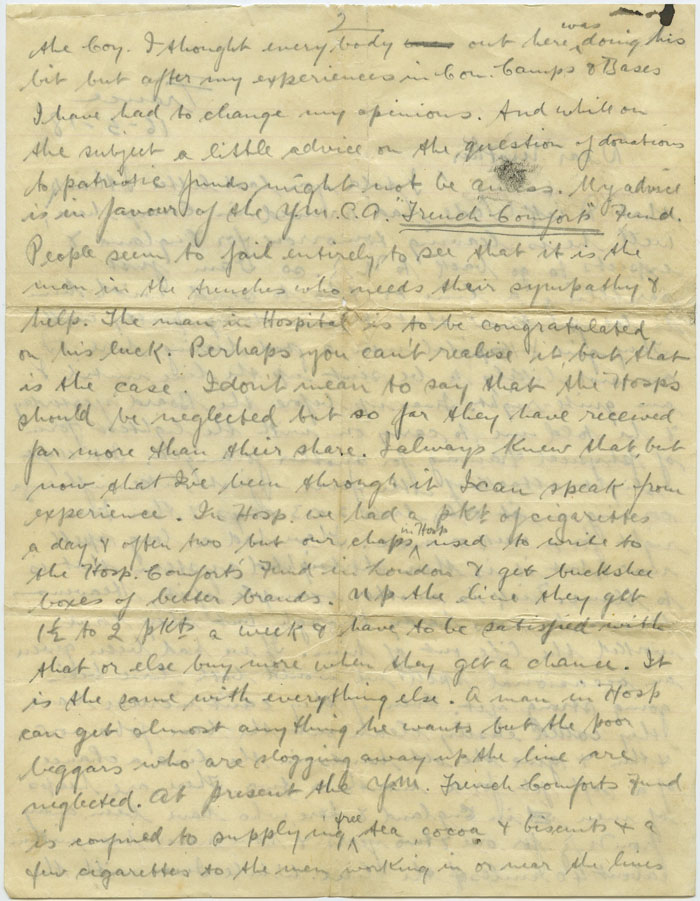 2
the boy. I thought every body out here was doing his
bit but after my experiences in Con. Camps & Bases
I have had to change my opinions. And while on
the subject a little advice on the question of donations
to patriotic funds might not be amiss. My advice
is in favour of the Y.M.C.A. "Trench Comforts" Fund.
People seem to fail entirely to see that it is the
man in the trenches who needs their sympathy &
help. The man in Hospital is to be congratulated
on his luck. Perhaps you can't realise it, but that
is the case. I don't mean to say that the Hosps
should be neglected but so far they have received
far more than their share. I always knew that, but
now that I've been through it I can speak from
experience. In Hosp. we had a pkt of cigarettes
a day & often two but our chaps in Hosp used to write to
the Hosp. Comforts Fund in London & get buckshee
boxes of better brands. Up the line they get
1½ to 2 pkts a week & have to be satisfied with
that or else buy more when they get a chance. It
is the same with everything else. A man in Hosp
can get almost anything he wants but the poor
beggars who are slogging away up the line are
neglected. At present the Y.M. Trench Comforts Fund
is confined to supplying free tea, cocoa & biscuits & a
few cigarettes to the men working in or near the lines